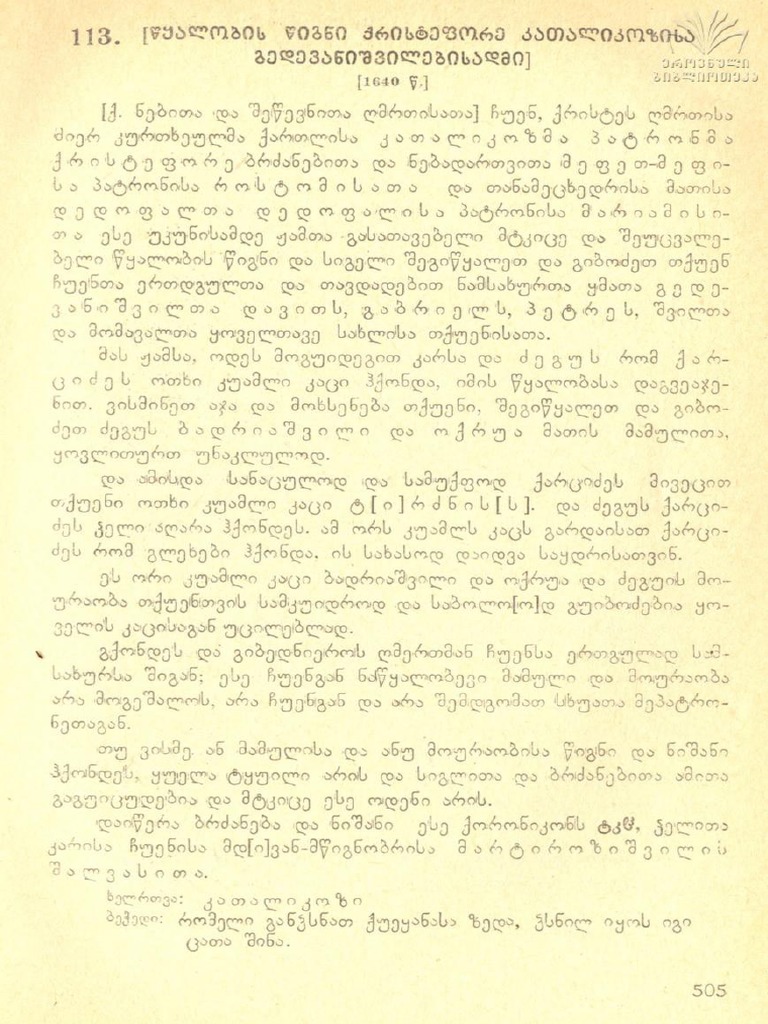 113. [წყალობის წიგნი ქრისტეფორე კათალიკოზისა
გედევანიშვილებისადმი]
ეროვნული
ბიბლიოთეკა
[1640 წ.]
[ქ. ნებითა და შეწევნითა ღმრთისათა] ჩუენ, ქრისტეს ღმრთისა
მიერ კურთხეულმა ქართლისა კათალიკოზმა პატრონმა
ქრისტეფორე ბრძანებითა და ნებადართვითა მეფეთ-მეფი-
სა პატრონისა როსტომისათა და თანამეცხედრისა მათისა
დედოფალთა დედოფალისა პატრონისა მარიამისი-
თა ესე უკუნისამდე ჟამთა გასათავებელი მტკიცე და შეუცვალე-
ბელი წყალობის წიგნი და სიგელი შეგიწყალეთ და გიბოძეთ თქუენ
ჩუენთა ერთდგულთა და თავდადებით ნამსახურთა ყმათა გედე-
ვანიშვილთა დავითს, გაბრიელს, პეტრეს, შვილთა
და მომავალთა ყოველთავე სახლისა თქუენისათა.
მას ჟამსა, ოდეს მოგუიდეგით კარსა და ძეგუს რომ ქარ-
ციძეს ოთხი კუამლი კაცი ჰქონდა, იმის წყალობასა დაგვეაჯე-
ნით. ვისმინეთ აჯა და მოხსენება თქუენი, შეგიწყალეთ და გიბო-
ძეთ ძეგუს ბადრიაშვილი და ოქრუა მათის მამულითა,
ყოვლითურთ უნაკლულოდ.
და ამისდა სანაცულოდ და სამუქფოდ ქარციძეს მივეცით
თქუენი ოთხი კუამლი კაცი ტ[ი]რძნის[ს]. და ძეგუს ქარცი-
ძეს ჴელი აღარა ჰქონდეს. ამ ორს კუამლს კაცს გარდაისათ ქარცი-
ძეს რომ გლეხები ჰქონდა. ის სახასოდ დაიდვა საყდრისათვინ.
ეს ორი კუამლი კაცი ბადრიაშვილი და ოქრუა და ძეგუის მო-
ურაობა თქუენთვის სამკუიდროდ და საბოლო[ო]დ გუიბოძებია ყო-
ველის კაცისაგან უცილებლად.
გქონდეს და გიბედნიეროს ღმერთმან ჩუენსა ერთგულად სამ-
სახურსა შიგან; ესე ჩუენგან ნაწყალობევი მამული და მოურაობა
არა მოგეშალოს, არა ჩუენგან და არა შემდგომათ სხუათა მეპატრო-
ნეთაგან.
თუ ვისმე ან მამულისა და ანუ მოურაობისა წიგნი და ნიშანი
ჰქონდეს, ყუელა ტყუილი არის და სიგლითა და ბრძანებითა ამითა
გაგუიცუდებია და მტკიცე ესე ოდენი არის.
დაიწერა ბრძანება და ნიშანი ესე ქორონიკონს ტკჱ, ჴელითა
კარისა ჩუენისა მდ[ი]ვან-მწიგნობრისა მარტიროზიშვილის
შალვასითა.
ხელრთვა: კათალიკოზი
ბეჭედი: რომელი განჴსნათ ქუეყანასა ზედა, ჴსნილ იყოს იგი
ცათა შინა.
505